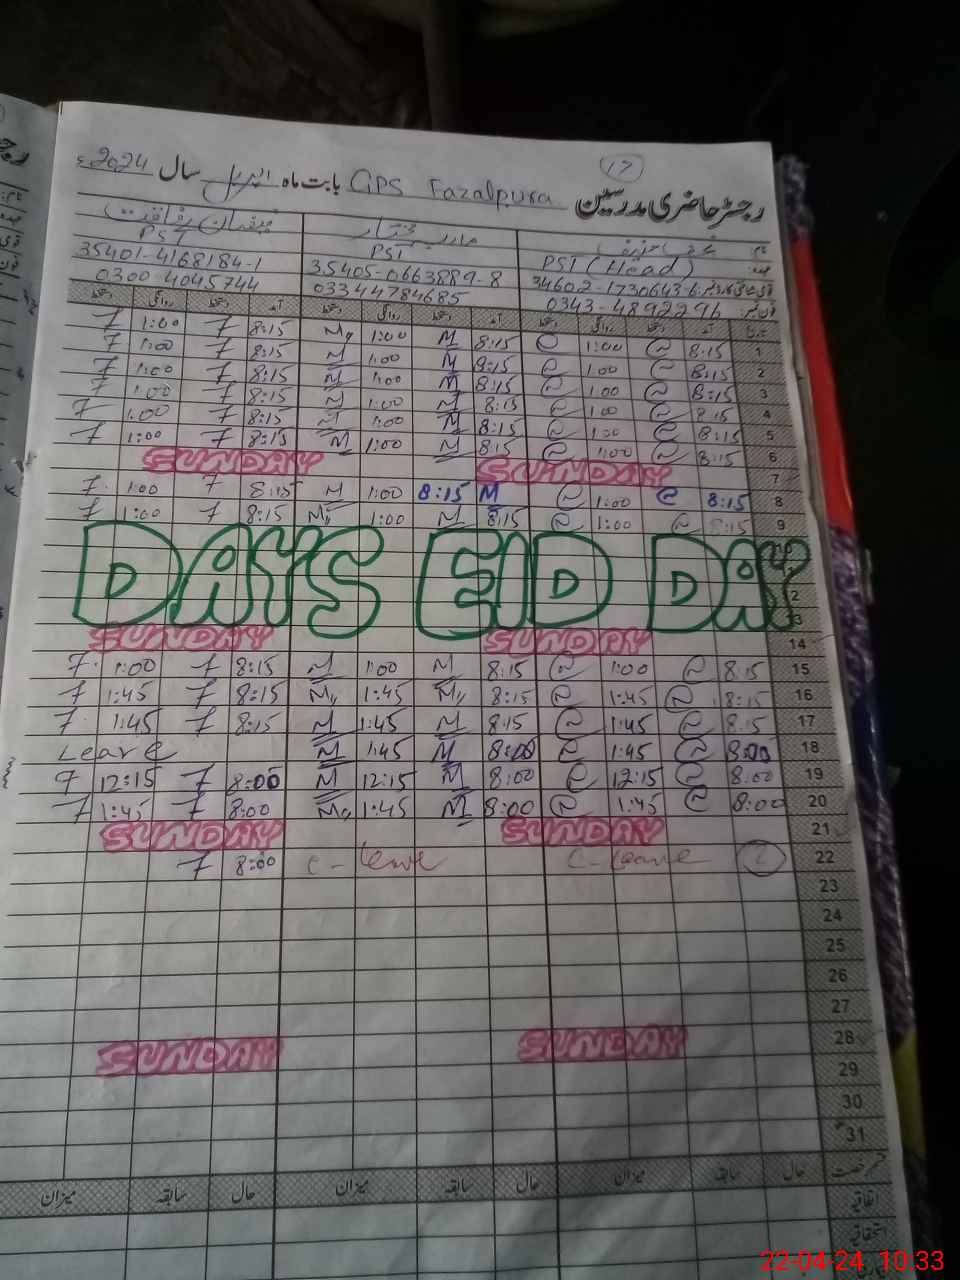 17
رجسٹر حاضری مدرسین GPS Fazalpura بابت ماہ اپریل سال 2024ء
نام:
PST (Head) PST PST
34602-1730643-6 35405-0663889-8 35401-4168184-1
0343-4892296 03344784685 0300-4045744
آمد دستخط روانگی دستخط آمد دستخط روانگی دستخط آمد دستخط روانگی دستخط
7 1:00 7 8:15 M 1:00 M 8:15 @ 1:00 @ 8:15 1
7 1:00 7 8:15 M 1:00 M 8:15 @ 1:00 @ 8:15 2
7 1:00 7 8:15 M 1:00 M 8:15 @ 1:00 @ 8:15 3
7 1:00 7 8:15 M 1:00 M 8:15 @ 1:00 @ 8:15 4
7 1:00 7 8:15 M 1:00 M 8:15 @ 1:00 @ 8:15 5
7 1:00 7 8:15 M 1:00 M 8:15 @ 1:00 @ 8:15 6
SUNDAY SUNDAY 7
7 1:00 7 8:15 M 1:00 8:15 M @ 1:00 @ 8:15 8
7 1:00 7 8:15 M 1:00 M 8:15 @ 1:00 @ 8:15 9
DAYS EID DAY
SUNDAY SUNDAY 14
7 1:00 7 8:15 M 1:00 M 8:15 @ 1:00 @ 8:15 15
7 1:45 7 8:15 M 1:45 M 8:15 @ 1:45 @ 8:15 16
7 1:45 7 8:15 M 1:45 M 8:15 @ 1:45 @ 8:15 17
Leave M 1:45 M 8:00 @ 1:45 @ 8:00 18
7 12:15 7 8:00 M 12:15 M 8:00 @ 12:15 @ 8:00 19
7 1:45 7 8:00 M 1:45 M 8:00 @ 1:45 @ 8:00 20
SUNDAY SUNDAY 21
7 8:00 C-leave C-leave 2 22
23
24
25
26
27
SUNDAY SUNDAY 28
29
30
31
حال سابقہ میزان حال سابقہ میزان حال سابقہ میزان
اتفاقیہ
استحقاقیہ
22-04-24 10:33